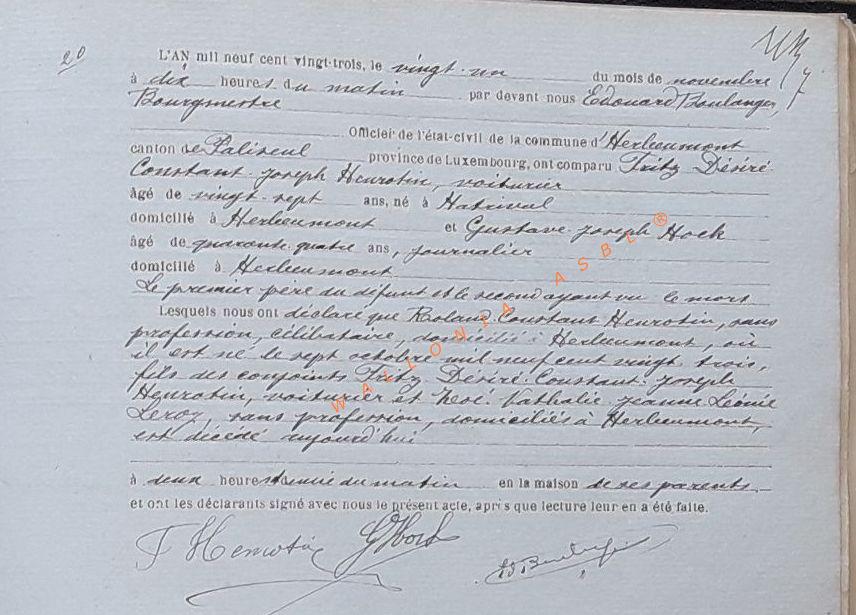 20
L'AN mil neuf cent vingt-trois, le vingt-un du mois de novembre
à dix heures du matin par devant nous Edouard Boulanger,
Bourgmestre
Officier de l'état-civil de la commune d'Herbeumont
canton de Paliseul province de Luxembourg, ont comparu Fritz Désiré
Constant Joseph Henrotin, voiturier
âgé de vingt-sept ans, né à Hatrival
domicilié à Herbeumont et Gustave Joseph Hock
âgé de quarante quatre ans, journalier
domicilié à Herbeumont
Le premier père du défunt et le second ayant vu le mort
Lesquels nous ont déclaré que Roland Constant Henrotin, sans
profession, célibataire, domicilié à Herbeumont, où
il est né le sept octobre mil neuf cent vingt trois,
fils des conjoints Fritz Désiré Constant Joseph
Henrotin, voiturier et Nathalie Jeanne Léonie
Leroy, sans profession, domiciliés à Herbeumont,
est décédé aujourd'hui
à deux heures du matin en la maison de ses parents
et ont les déclarants signé avec nous le présent acte, après que lecture leur en a été faite.
F Henrotin G Hock
WALLONIA ASBL ®